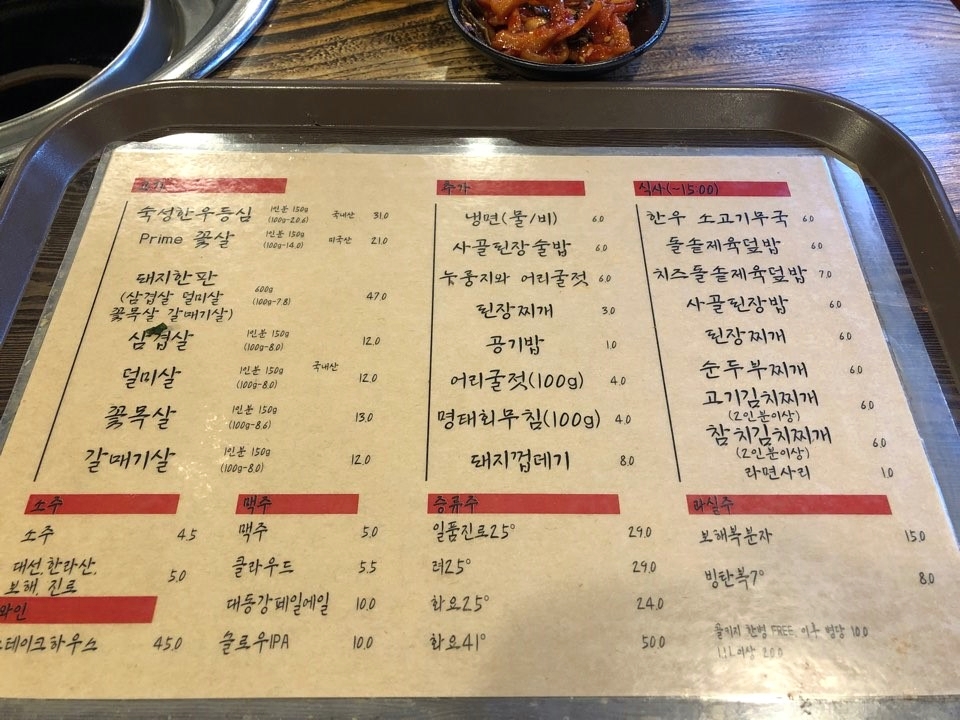 숙성한우등심 1인분 150g (100g-20.6) 국내산 31.0
Prime 꽃살 1인분 150g (100g-14.0) 미국산 21.0
돼지한판 600g
(삼겹살 덜미살 (100g-7.8) 47.0
꽃목살 갈매기살)
삼겹살 1인분 150g (100g-8.0) 12.0
국내산
덜미살 1인분 150g (100g-8.0) 12.0
꽃목살 1인분 150g (100g-8.6) 13.0
갈매기살 1인분 150g (100g-8.0) 12.0
추가
냉면(물/비) 6.0
사골된장술밥 6.0
누룽지와 어리굴젓 6.0
된장찌개 3.0
공기밥 1.0
어리굴젓(100g) 4.0
명태회무침(100g) 4.0
돼지껍데기 8.0
식사(~15:00)
한우 소고기무국 6.0
돌솥제육덮밥 6.0
치즈돌솥제육덮밥 7.0
사골된장밥 6.0
된장찌개 6.0
순두부찌개 6.0
고기김치찌개 6.0
(2인분이상)
참치김치찌개 6.0
(2인분이상)
라면사리 1.0
소주
소주 4.5
대선,한라산,
보해,진로 5.0
와인
스테이크하우스 45.0
맥주
맥주 5.0
클라우드 5.5
대동강페일에일 10.0
슬로우IPA 10.0
증류주
일품진로25° 29.0
려25° 29.0
화요25° 24.0
화요41° 50.0
과실주
보해복분자 15.0
빙탄복7° 8.0
콜키지 한병 FREE, 이후 병당 10.0
1.1L이상 20.0